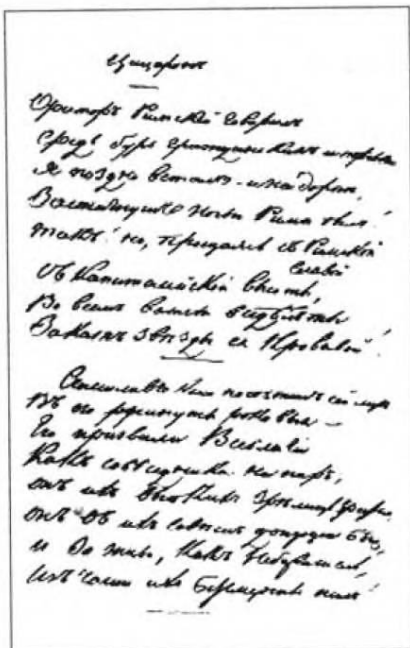 Цицеронъ
Ораторъ Римскій говорилъ
Средь бурь гражданскихъ и тревоги
Я поздно всталъ - и на дорогѣ
ночью Рима былъ!
Такъ! но, прощаясь съ Римской
Славой
Съ Капитолійской высоты,
Во всемъ величьи видѣлъ ты
Закатъ звѣзды ея кровавой!
Счастливъ кто посѣтилъ сей міръ
Въ его минуты роковыя —
Его призвали Всеблагіе
Какъ собесѣдника на пиръ,
Онъ ихъ высокихъ зрѣлищъ зритель,
Онъ въ ихъ совѣтъ допущенъ былъ,
И заживо, какъ небожитель,
Изъ чаши ихъ безсмертье пилъ!